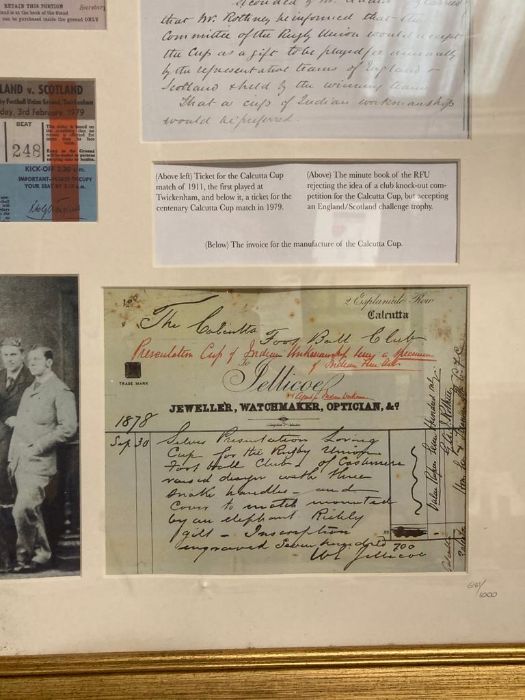 RETAIN THIS PORTION
LAND v. SCOTLAND
by Football Union Ground, Twickenham
day, 3rd February, 1979
SEAT
248
KICK-OFF 2.30 p.m.
IMPORTANT
YOUR SEAT BY
that Mr. Rothney be informed that the
Committee of the Rugby Union would accept
the Cup as a gift to be played for annually
by the representative teams of England &
Scotland & held by the winning team
That a cup of Indian workmanship
would be preferred
(Above left) Ticket for the Calcutta Cup
match of 1911, the first played at
Twickenham, and below it, a ticket for the
centenary Calcutta Cup match in 1979.
(Above) The minute book of the RFU
rejecting the idea of a club knock-out com-
petition for the Calcutta Cup, but accepting
an England/Scotland challenge trophy.
(Below) The invoice for the manufacture of the Calcutta Cup.
2 Esplanade Row
Calcutta
The Calcutta Foot Ball Club
Presentation Cup of Indian Workmanship being a specimen
of Indian
To
Jellicoe
TRADE MARK
JEWELLER, WATCHMAKER, OPTICIAN, &c
1878
Sep 30 Silver Presentation Loving
Cup for the Rugby Union
Foot Ball Club of Cashmere
raised design with three
snake handles and
Cover to match mounted
by an elephant Richly
gilt - Inscription
engraved Seven hundred 700
W Jellicoe
/1000